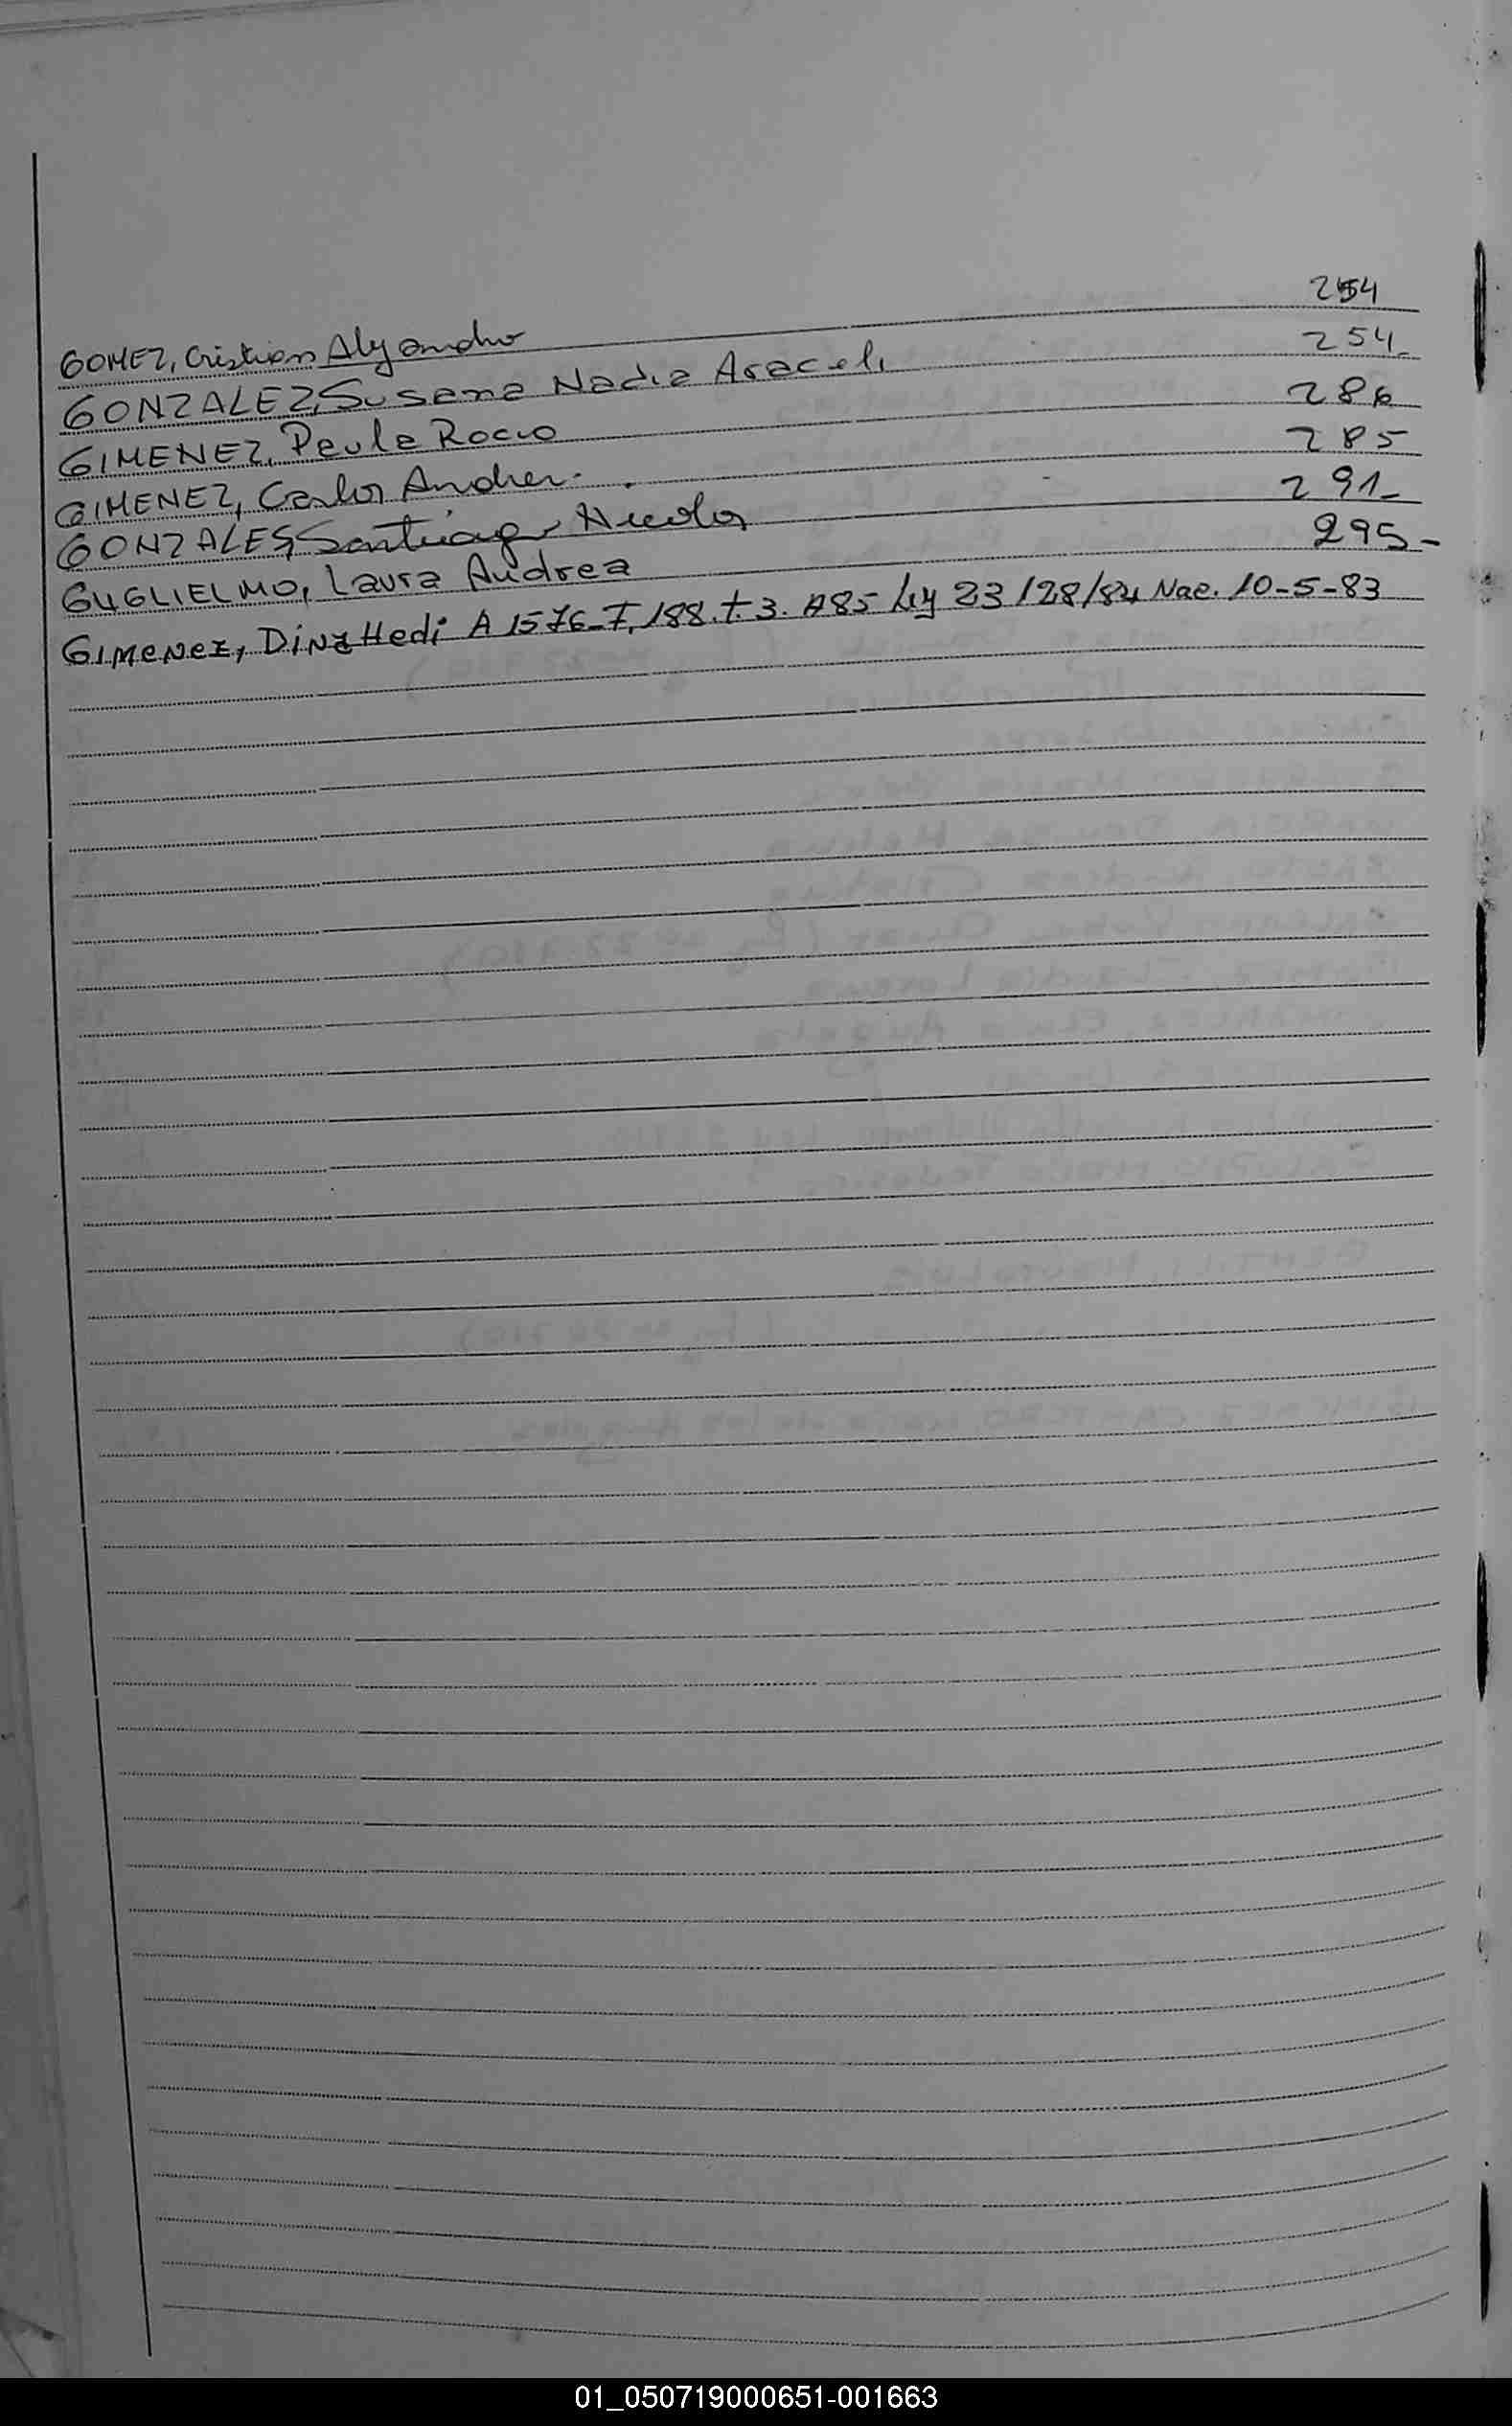 GOMEZ, Cristian Alejandro 254
GONZALEZ, Susana Nadia Araceli 254-
GIMENEZ, Paula Rocio 286
GIMENEZ, Carlos Andres. 285
GONZALES, Santiago Nicolas 291-
GUGLIELMO, Laura Andrea 295-
GIMENEZ, Dina Hedi A 1576-F, 188. t. 3. A85 Ley 23128/84 Nac. 10-5-83
01_050719000651-001663